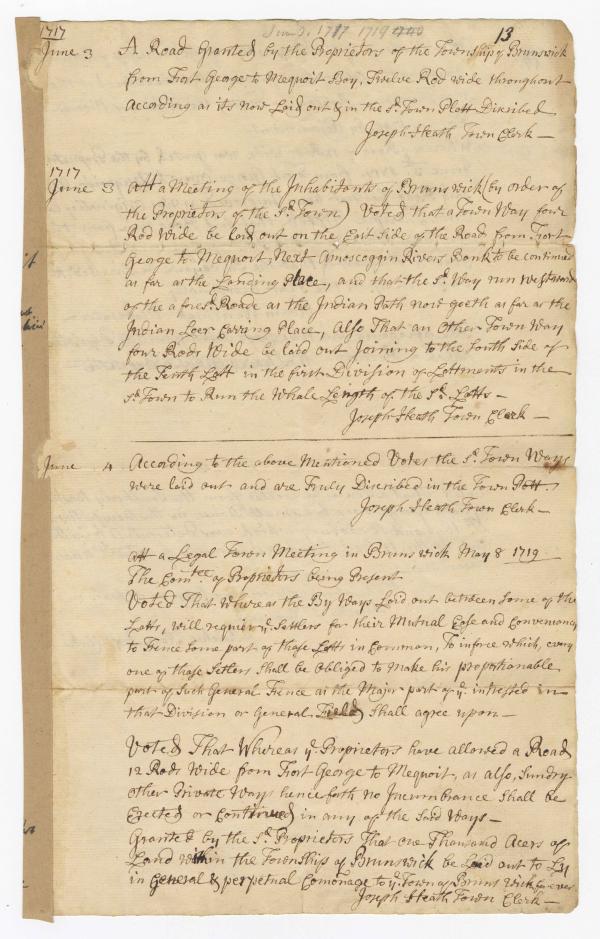 June 3, 1717 1719
13
1717
June 3 A Road Granted by the Proprietors of the Township of Brunswick
from Fort George to Mequoit Bay, Twelve Rod wide throughout
According as its now Laid out & in the sd. Town Plott Discribed
Joseph Heath Town Clerk —
1717
June 3 Att a Meeting of the Inhabitants of Brunswick (by order of
the Proprietors of the sd. Town) Voted that a Town Way four
Rod Wide be laid out on the East side of the Road from Fort
George to Mequoit, Next Amoscoggin Rivers Bank to be continued
as far as the Landing Place, and that the sd. Way run westward
of the aforesd. Roade as the Indian Path now goeth as far as the
Indian Carring Place, Also That an Other Town Way
four Rods Wide be laid out Joining to the South Side of
the Tenth Lott in the first Division of Lottments in the
sd. Town to Run the Whale Length of the sd. Lotts —
Joseph Heath Town Clerk —
June 4 According to the above Mentioned Votes the sd. Town Ways
were laid out and are Truly Discribed in the Town
Joseph Heath Town Clerk —
Att a Legal Town Meeting in Brunswick May 8 1719
The Comtee of Proprietors being Present
Voted That Whereas the By Ways Laid out between some of the
Lotts, will requier ye. Settlers for their Mutual Ease and Conveniency
to Fence some part of those Lotts in Common, To inforce which, every
one of those Setlers Shall be Obliged to Make his proportionable
part of Such General Fence as the Major part of ye. intrested in
that Division or General Field Shall agree upon —
Voted That Whereas ye. Proprietors have allowed a Road
12 Rods Wide from Fort George to Mequoit, as also, Sundry
Other Private Ways henceforth no Incumbrance Shall be
Erected or Continued in any of the Said Ways —
Granted by the sd. Proprietors That one Thousand Acers of
Land within the Township of Brunswick be Laid out to Ly
in General & perpetual Comonage to ye. Town of Brunswick for ever
Joseph Heath Town Clerk —